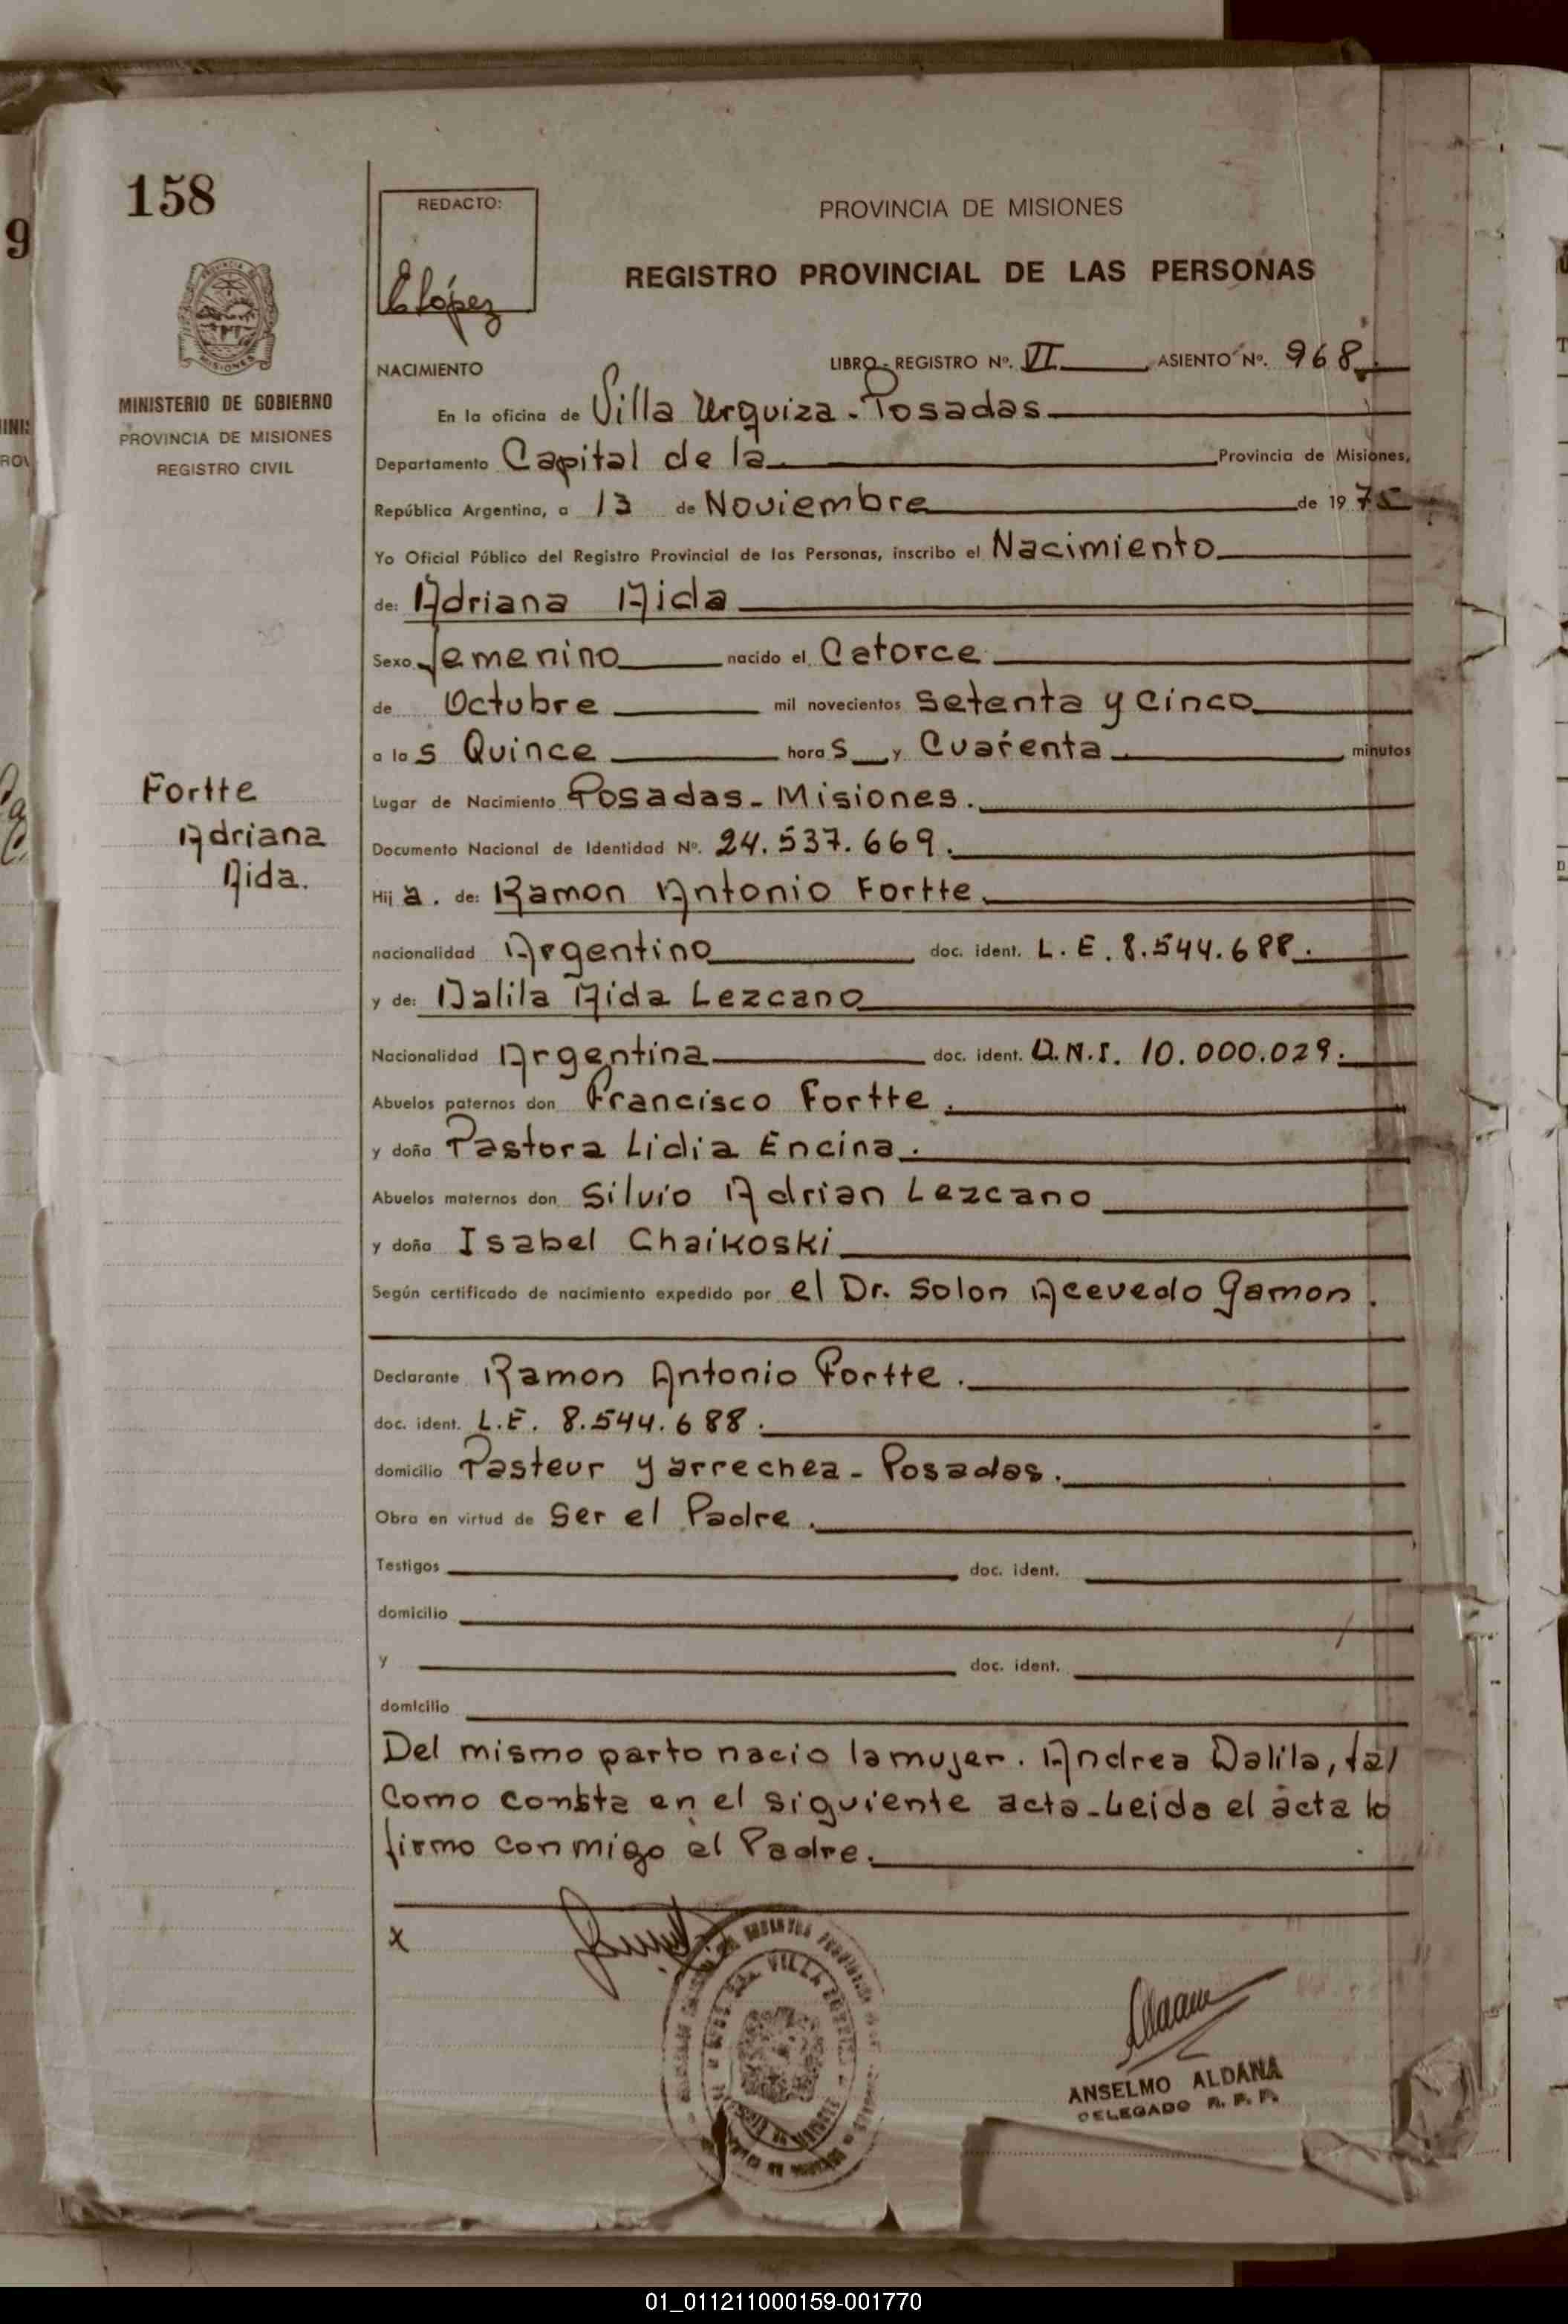 158
REDACTO:
E López
PROVINCIA DE MISIONES
REGISTRO PROVINCIAL DE LAS PERSONAS
MINISTERIO DE GOBIERNO
PROVINCIA DE MISIONES
REGISTRO CIVIL
NACIMIENTO LIBRO - REGISTRO Nº. VI ASIENTO Nº. 968.
En la oficina de Villa Urquiza - Posadas
Departamento Capital de la Provincia de Misiones,
República Argentina, a 13 de Noviembre de 1975
Yo Oficial Público del Registro Provincial de las Personas, inscribo el Nacimiento
de: Adriana Aida
Sexo femenino nacido el Catorce
de Octubre mil novecientos setenta y cinco
a las Quince horas y Cuarenta minutos
Fortte
Adriana
Aida.
Lugar de Nacimiento Posadas - Misiones.
Documento Nacional de Identidad Nº. 24.537.669.
Hija. de: Ramon Antonio Fortte
nacionalidad Argentino doc. ident. L.E. 8.544.688.
y de: Dalila Aida Lezcano
Nacionalidad Argentina doc. ident. D.N.I. 10.000.029.
Abuelos paternos don Francisco Fortte.
y doña Pastora Lidia Encina.
Abuelos maternos don Silvio Adrian Lezcano
y doña Isabel Chaikoski
Según certificado de nacimiento expedido por el Dr. Solon Acevedo Gamon.
Declarante Ramon Antonio Fortte.
doc. ident. L.E. 8.544.688.
domicilio Pasteur y arrechea - Posadas.
Obra en virtud de Ser el Padre.
Testigos doc. ident.
domicilio
y doc. ident.
domicilio
Del mismo parto nacio la mujer. Andrea Dalila, tal
Como consta en el siguiente acta - Leida el acta lo
firmo conmigo el Padre.
x
VILLA
ANSELMO ALDANA
DELEGADO R. P. P.
01_011211000159-001770